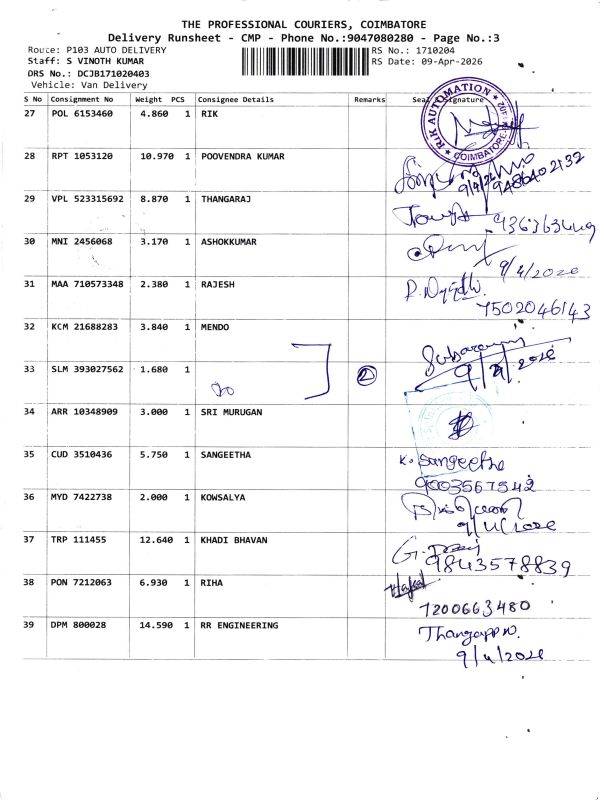 THE PROFESSIONAL COURIERS, COIMBATORE
Delivery Runsheet - CMP - Phone No.:9047080280 - Page No.:3
Route: P103 AUTO DELIVERY
RS No.: 1710204
Staff: S VINOTH KUMAR
RS Date: 09-Apr-2026
DRS No.: DCJB171020403
Vehicle: Van Delivery
S No Consignment No Weight PCS Consignee Details Remarks Seal Signature
27 POL 6153460 4.860 1 RIK
RIK AUTOMATION COIMBATORE
28 RPT 1053120 10.970 1 POOVENDRA KUMAR
9486402132
29 VPL 523315692 8.870 1 THANGARAJ
30 MNI 2456068 3.170 1 ASHOKKUMAR
9/4/2026
31 MAA 710573348 2.380 1 RAJESH
7502046143
32 KCM 21688283 3.840 1 MENDO
33 SLM 393027562 1.680 1
2
34 ARR 10348909 3.000 1 SRI MURUGAN
35 CUD 3510436 5.750 1 SANGEETHA
K. Sangeetha
9003567542
36 MYD 7422738 2.000 1 KOWSALYA
37 TRP 111455 12.640 1 KHADI BHAVAN
9843578839
38 PON 7212063 6.930 1 RIHA
7200663480
39 DPM 800028 14.590 1 RR ENGINEERING
9/4/2026